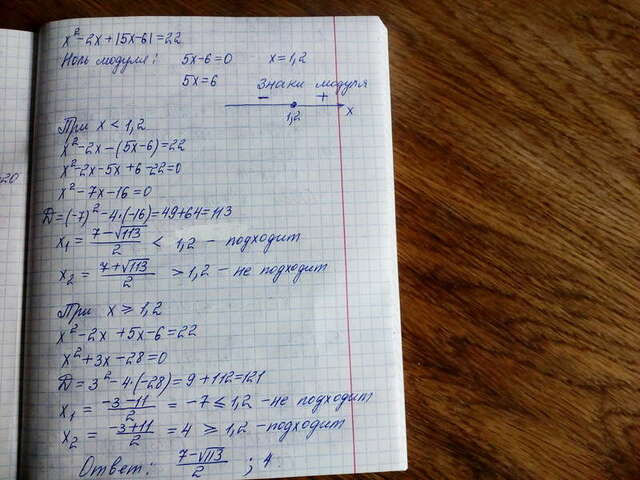 x²-2x+|5x-6|=22
Ноль модуля: 5x-6=0 x=1,2
5x=6 Знаки модуля
- +
1,2 x
При x < 1,2
x²-2x-(5x-6)=22
x²-2x-5x+6-22=0
x²-7x-16=0
D=(-7)²-4·(-16)=49+64=113
x₁ = (7-√113)/2 < 1,2 - подходит
x₂ = (7+√113)/2 > 1,2 - не подходит
При x ≥ 1,2
x²-2x+5x-6=22
x²+3x-28=0
D=3²-4·(-28)=9+112=121
x₁ = (-3-11)/2 = -7 ≤ 1,2 - не подходит
x₂ = (-3+11)/2 = 4 ≥ 1,2 - подходит
Ответ: (7-√113)/2 ; 4.